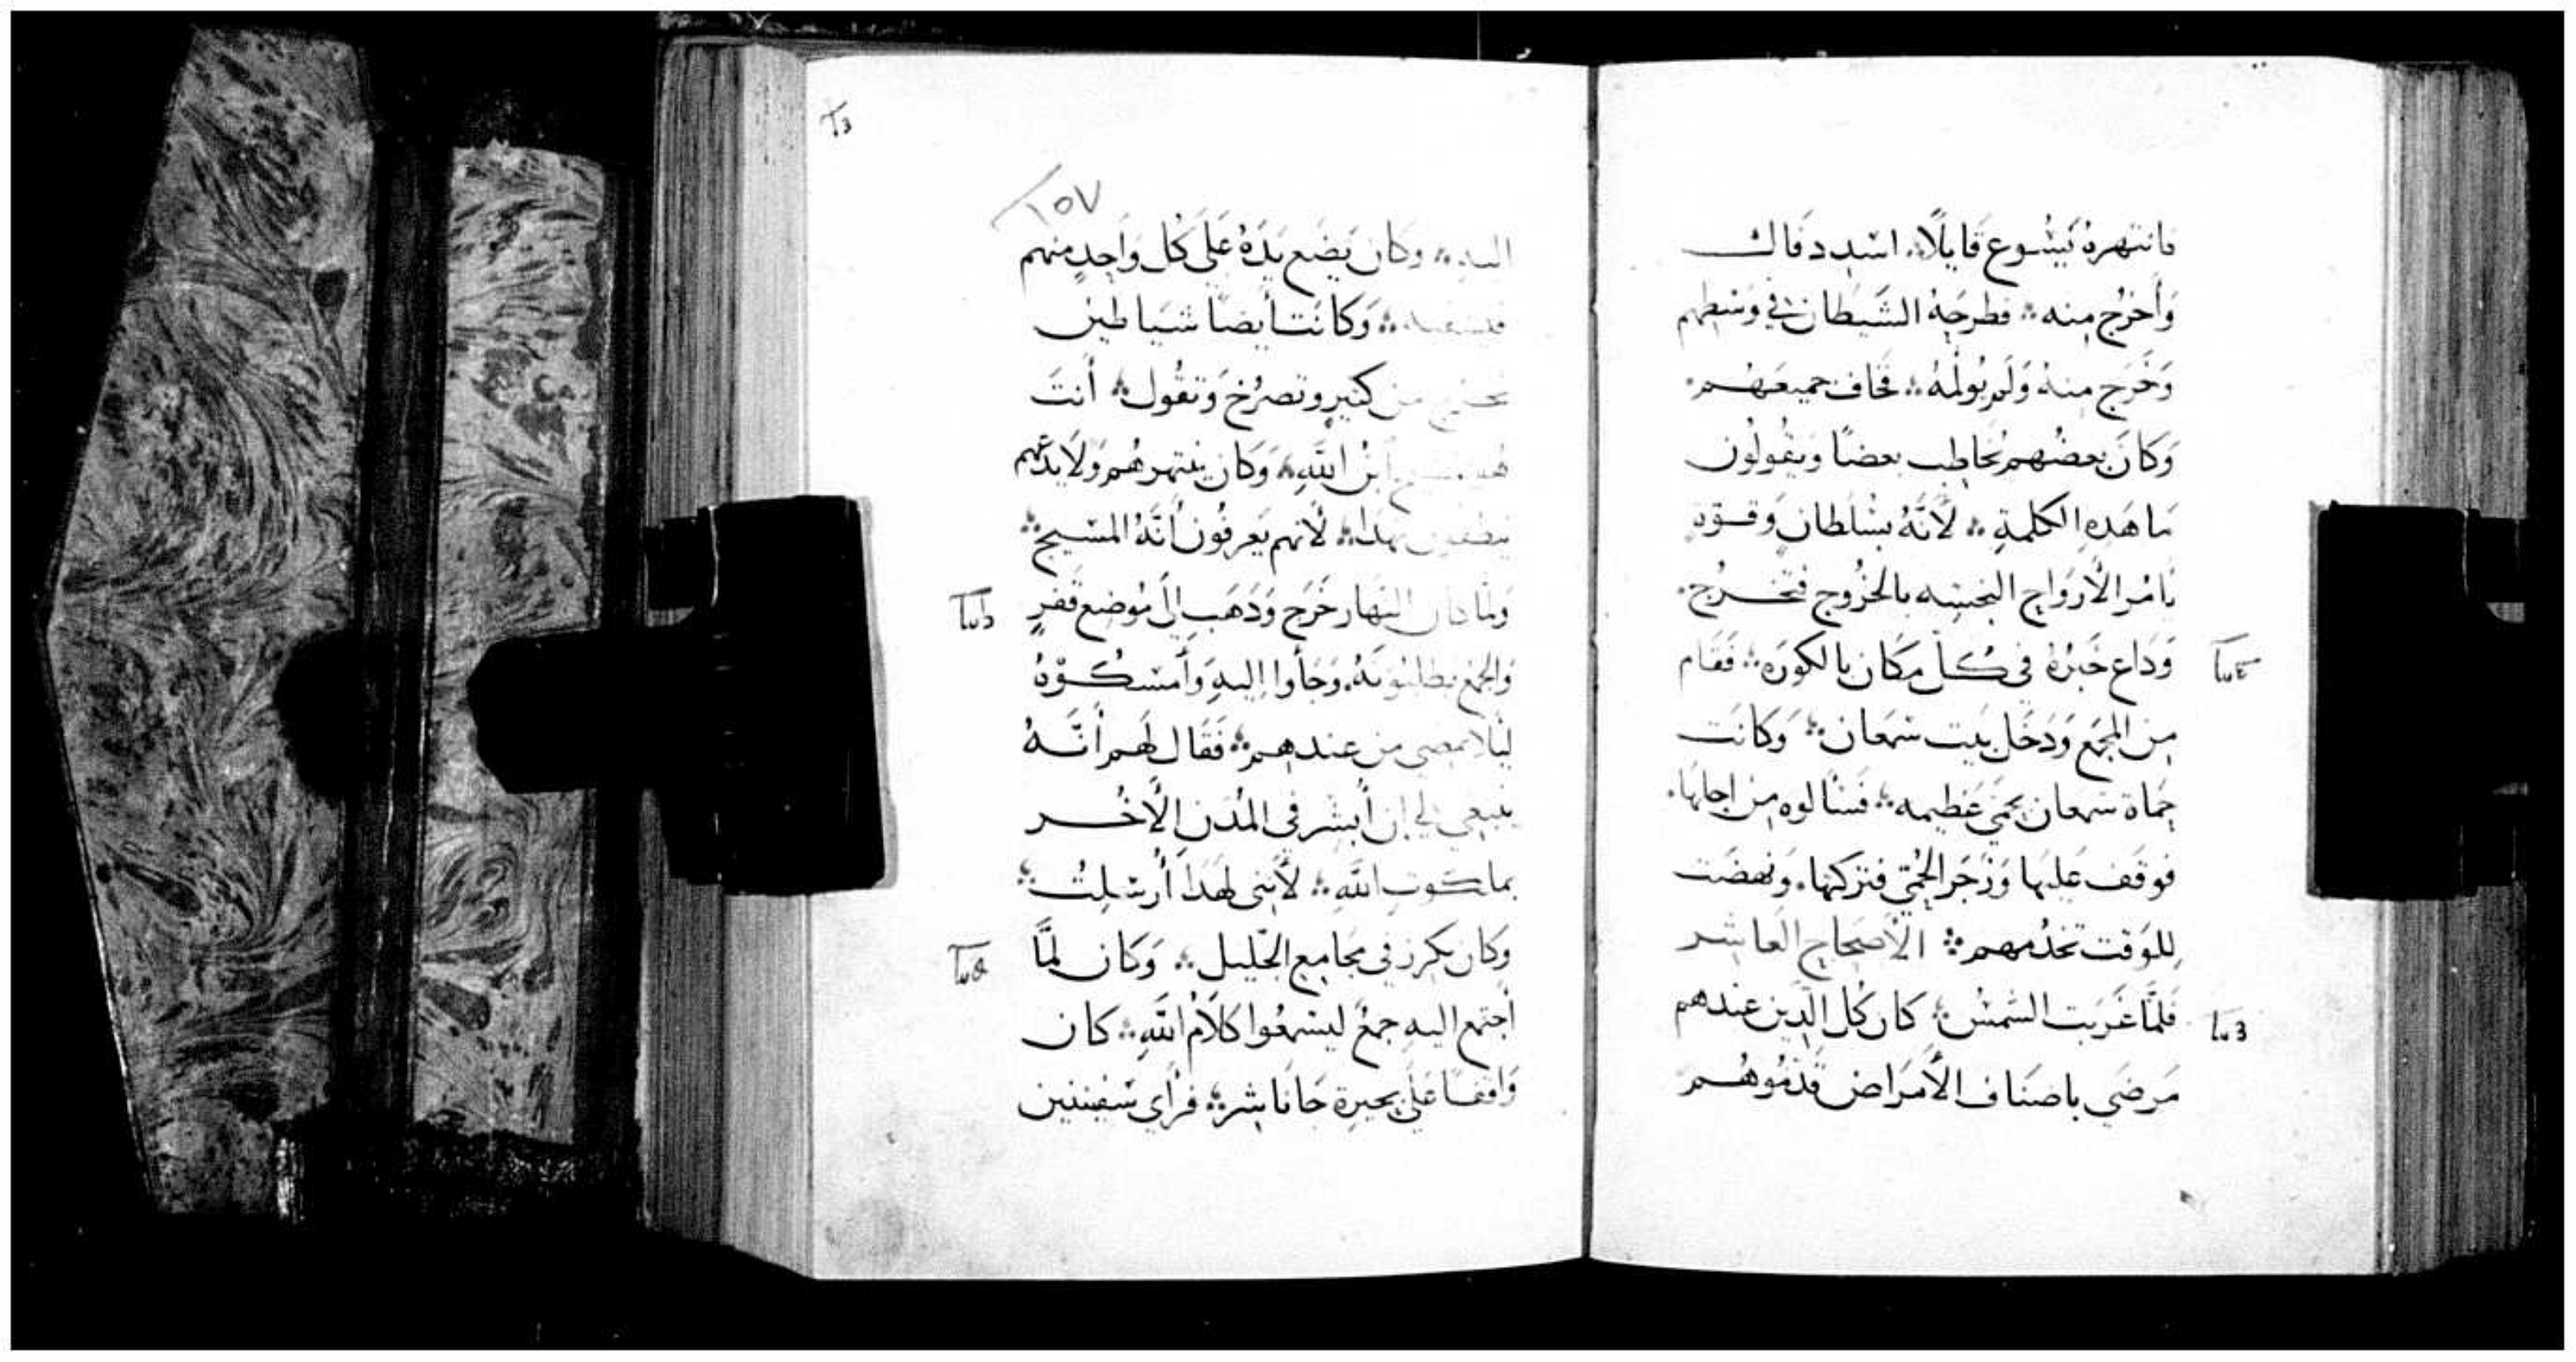 فانتهره يَسُوع قَايلًا. اسدد فاك
وَأخرُج منه ۞ فطرحَهُ الشَيطان في وَسَطهم
وَخَرَج منهُ وَلَم يُولمهُ ۞ فخاف جميعَهُم
وَكانَ بعضُهم يُخاطِب بعضًا وَيقُولون
مَا هَدِه الكلمةِ ۞ لأنّهُ بسُلطان وَقوّةٍ
يَامُر الأروَاح النجسه بالخُروج فتخرُج.
وَداع خَبرُهُ في كُل مكان بالكورَه ۞ فَقَام
من المجمَع وَدَخَل بَيت سَمعان ۞ وَكانَت
حماة سمعان بحمَّى عَظيمه ۞ فسَالوه من اجلها.
فوقَف عَليها وَزجَر الحُمَّى فتركتها. وَنهضَت
للوَقت تخدُمهم ۞ الأصحَاح العَاشر
فَلمَّا غَربَت الشمسُ ۞ كان كُل الدين عندهم
مَرضَى باصنَاف الأمرَاض قدَمُوهُم
١٥٧
اليه ۞ وكان يَضَع يَدَهُ عَلَى كُل وَاحِدٍ منهم
۞ وَكانَت أيضًا شَيَاطين
من كثيرٍ وتصرُخ وَتقُول ۞ أنتَ
ابن الله ۞ وَكان ينتهرهُم وَلَا يدَعهُم
ينطقون بهدا ۞ لأنهم يَعرفُون أنّهُ المسيح ۞
وَلمّا كان النهار خَرج وَدَهَب إلَى مَوضع قَفرٍ
وَالجمع يطلبُونَهُ. وَجَأوا إليهِ وَأمسكوهُ
ليلا يمضي من عندهم ۞ فَقَال لَهم أنّهُ
ينبَغي لي ان أبشر في المُدن الأُخَر
بملكوت الله ۞ لأنني لهَدا أرسلتُ ۞
وَكان يكرز في مجَامع الجَليل ۞ وَكان لمَّا
أجتمع اليه جمعٌ ليسمعُوا كلَام الله ۞ كان
وَاقفًا عَلَى بحيرة جَانَاشر ۞ فرَأى سَفينتين